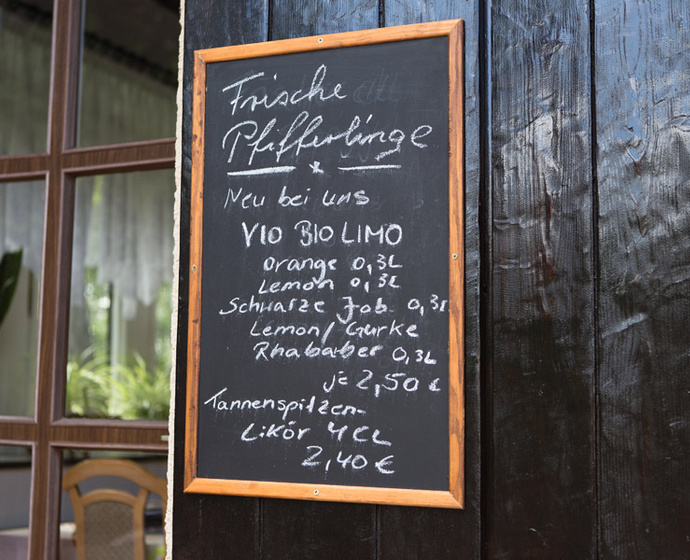 Frische
Pfifferlinge
x
Neu bei uns
VIO BIO LIMO
Orange 0,3L
Lemon 0,3L
Schwarze Job. 0,3L
Lemon/Gurke
Rhababer 0,3L
je 2,50 €
Tannenspitzen-
Likör 4CL
2,40 €